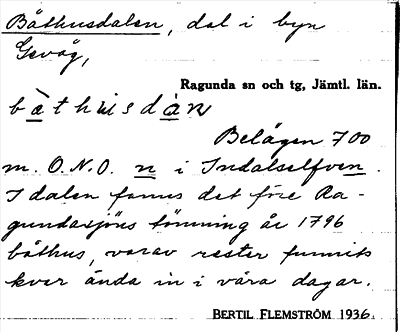 Båthusdalen, dal i byn
Gevåg,
Ragunda sn och tg, Jämtl. län.
bàthùsdàn
Belägen 700
m. O.N.O. n i Indalselfven.
I dalen fanns det före Ra-
gundasjöns tömning år 1796
båthus, varav rester funnits
kvar ända in i våra dagar.
BERTIL FLEMSTRÖM 1936.